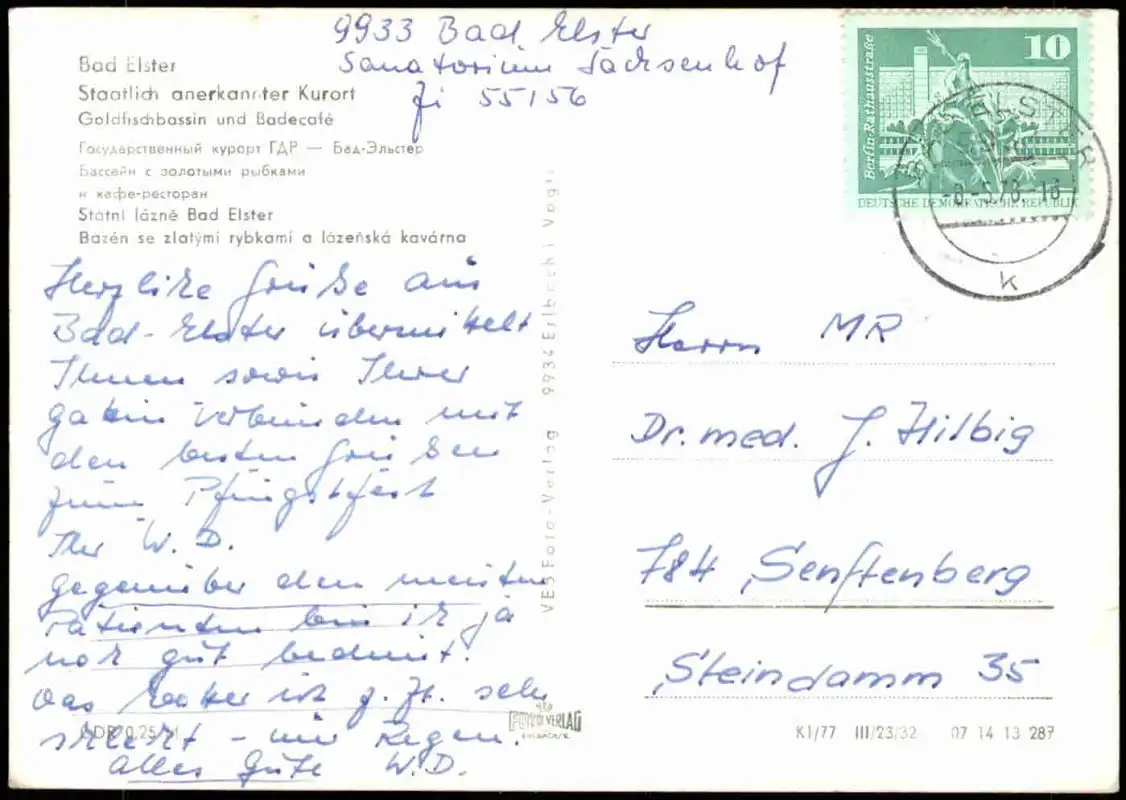 9933 Bad Elster
Sanatorium Sachsenhof
Zi 55/56
Bad Elster
Staatlich anerkannter Kurort
Goldfischbassin und Badecafé
Государственный курорт ГДР — Бад-Эльстер
Бассейн с золотыми рыбками
и кафе-ресторан
Státní lázně Bad Elster
Bazén se zlatými rybkami a lázeňská kavárna
Herzliche Grüße aus
Bad-Elster übermittelt
Ihnen sowie Ihrer
Gattin verbunden mit
den besten Grüßen
zum Pfingstfest
Ihr W.D.
Gegenüber den meisten
Patienten bin ich ja
noch gut bedient.
Das Wetter ist z.Zt. sehr
schlecht - nur Regen.
Alles Gute W.D.
DDR 0,25 M
VEB Foto-Verlag 9934 Erlbach i Vogtl
FOTO VERLAG
ERLBACH/V.
10
Berlin-Rathausstraße
DEUTSCHE DEMOKRATISCHE REPUBLIK
BAD ELSTER
-8.-5.78-18
k
Herrn MR
Dr. med. J. Hilbig
784 Senftenberg
Steindamm 35
K1/77 III/23/32 07 14 13 287